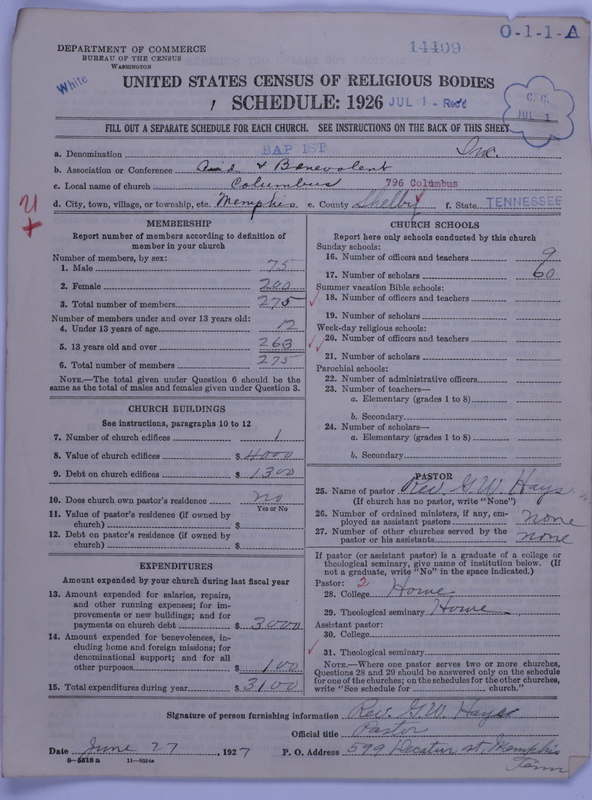 O-1-1-A
14409
DEPARTMENT OF COMMERCE
BUREAU OF THE CENSUS
WASHINGTON
White
UNITED STATES CENSUS OF RELIGIOUS BODIES
1 SCHEDULE: 1926 JUL 1 - Rec'd
C. C.
JUL 1
FILL OUT A SEPARATE SCHEDULE FOR EACH CHURCH. SEE INSTRUCTIONS ON THE BACK OF THIS SHEET
a. Denomination BAPTIST Inc.
b. Association or Conference Aid & Benevolent
c. Local name of church Columbus 796 Columbus
d. City, town, village, or township, etc. Memphis e. County Shelby f. State TENNESSEE
MEMBERSHIP
Report number of members according to definition of member in your church
Number of members, by sex:
1. Male 75
2. Female 200
3. Total number of members 275
Number of members under and over 13 years old:
4. Under 13 years of age 12
5. 13 years old and over 263
6. Total number of members 275
NOTE.—The total given under Question 6 should be the
same as the total of males and females given under Question 3.
CHURCH BUILDINGS
See instructions, paragraphs 10 to 12
7. Number of church edifices 1
8. Value of church edifices $ 4000
9. Debt on church edifices $ 1300
10. Does church own pastor's residence no
Yes or No
11. Value of pastor's residence (if owned by
church) $
12. Debt on pastor's residence (if owned by
church) $
EXPENDITURES
Amount expended by your church during last fiscal year
13. Amount expended for salaries, repairs,
and other running expenses; for im-
provements or new buildings; and for
payments on church debt $ 3000
14. Amount expended for benevolences, in-
cluding home and foreign missions; for
denominational support; and for all
other purposes $ 100
15. Total expenditures during year $ 3100
CHURCH SCHOOLS
Report here only schools conducted by this church
Sunday schools:
16. Number of officers and teachers 9
17. Number of scholars 60
Summer vacation Bible schools:
18. Number of officers and teachers
19. Number of scholars
Week-day religious schools:
20. Number of officers and teachers
21. Number of scholars
Parochial schools:
22. Number of administrative officers
23. Number of teachers—
a. Elementary (grades 1 to 8)
b. Secondary
24. Number of scholars—
a. Elementary (grades 1 to 8)
b. Secondary
PASTOR
25. Name of pastor Rev. G. W. Hays
(If church has no pastor, write "None")
26. Number of ordained ministers, if any, em-
ployed as assistant pastors none
27. Number of other churches served by the
pastor or his assistants none
If pastor (or assistant pastor) is a graduate of a college or
theological seminary, give name of institution below. (If
not a graduate, write "No" in the space indicated.)
Pastor: 2
28. College Howe
29. Theological seminary Howe
Assistant pastor:
30. College
31. Theological seminary
NOTE.—Where one pastor serves two or more churches,
Questions 28 and 29 should be answered only on the schedule
for one of the churches; on the schedules for the other churches,
write "See schedule for church."
Signature of person furnishing information Rev. G. W. Hays
Official title Pastor
Date June 27, 1927 P. O. Address 599 Decatur st. Memphis
Tenn
8-5518 a 11-9224a